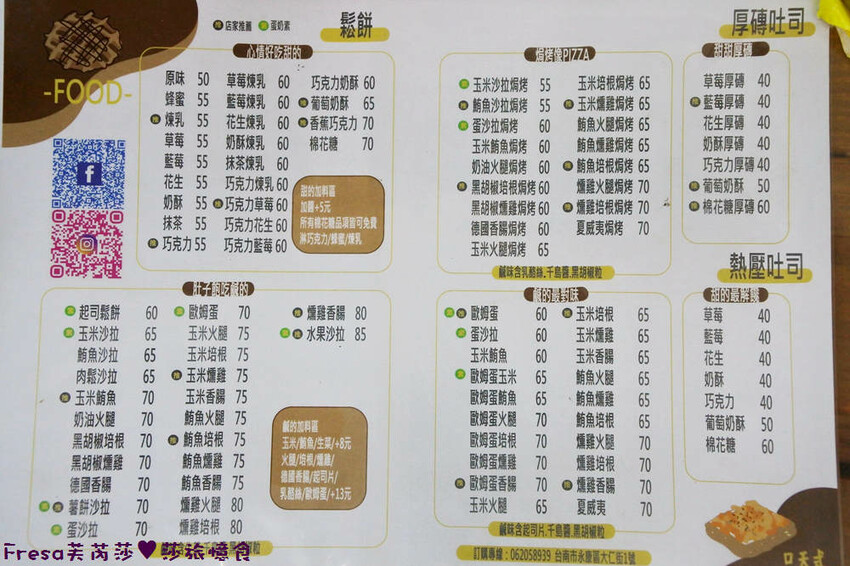 -FOOD-
推 店家推薦 素 蛋奶素
鬆餅
心情好吃甜的
原味 50
蜂蜜 55
推 煉乳 55
草莓 55
藍莓 55
花生 55
奶酥 55
抹茶 55
推 巧克力 55
草莓煉乳 60
藍莓煉乳 60
花生煉乳 60
奶酥煉乳 60
抹茶煉乳 60
巧克力煉乳 60
推 巧克力草莓 60
巧克力花生 60
巧克力藍莓 60
巧克力奶酥 60
推 葡萄奶酥 65
推 香蕉巧克力 70
棉花糖 70
甜的加料區
加醬+5元
所有棉花糖品項皆可免費
淋巧克力/蜂蜜/煉乳
肚子餓吃鹹的
素 起司鬆餅 60
素 玉米沙拉 65
鮪魚沙拉 65
肉鬆沙拉 65
推 玉米鮪魚 70
奶油火腿 70
黑胡椒培根 70
黑胡椒燻雞 70
德國香腸 70
素 推 薯餅沙拉 70
素 蛋沙拉 70
素 歐姆蛋 70
玉米火腿 75
玉米培根 75
推 玉米燻雞 75
玉米香腸 75
鮪魚火腿 75
推 鮪魚培根 75
鮪魚燻雞 75
鮪魚香腸 75
燻雞火腿 80
燻雞培根 80
推 燻雞香腸 80
素 推 水果沙拉 85
鹹的加料區
玉米/鮪魚/生菜/+8元
火腿/培根/燻雞/
德國香腸/起司片/
乳酪絲/歐姆蛋/+13元
厚磚吐司
焗烤像PIZZA
素 玉米沙拉焗烤 55
推 鮪魚沙拉焗烤 55
素 蛋沙拉焗烤 60
玉米鮪魚焗烤 60
奶油火腿焗烤 60
推 黑胡椒培根焗烤 60
黑胡椒燻雞焗烤 60
德國香腸焗烤 60
玉米火腿焗烤 65
玉米培根焗烤 65
推 玉米燻雞焗烤 65
鮪魚火腿焗烤 65
推 鮪魚培根焗烤 65
燻雞火腿焗烤 70
推 燻雞培根焗烤 70
夏威夷焗烤 70
鹹味含乳酪絲.千島醬.黑胡椒粒
甜甜厚磚
草莓厚磚 40
推 藍莓厚磚 40
花生厚磚 40
奶酥厚磚 40
巧克力厚磚 40
推 葡萄奶酥 50
推 棉花糖厚磚 60
熱壓吐司
鹹的最對味
素 推 歐姆蛋 60
素 蛋沙拉 60
玉米鮪魚 60
素 歐姆蛋玉米 65
歐姆蛋鮪魚 65
歐姆蛋火腿 70
歐姆蛋培根 70
歐姆蛋燻雞 70
推 歐姆蛋香腸 70
玉米火腿 65
推 玉米培根 65
玉米燻雞 65
玉米香腸 65
鮪魚火腿 65
鮪魚培根 65
鮪魚香腸 65
燻雞培根 70
燻雞火腿 70
推 燻雞香腸 70
夏威夷 70
鹹味含起司片.千島醬.黑胡椒粒
甜的最解饞
草莓 40
藍莓 40
花生 40
奶酥 40
巧克力 40
葡萄奶酥 50
棉花糖 60
訂購專線：062058939 台南市永康區大仁街1號
Fresa芙芮莎♥莎旅憶食